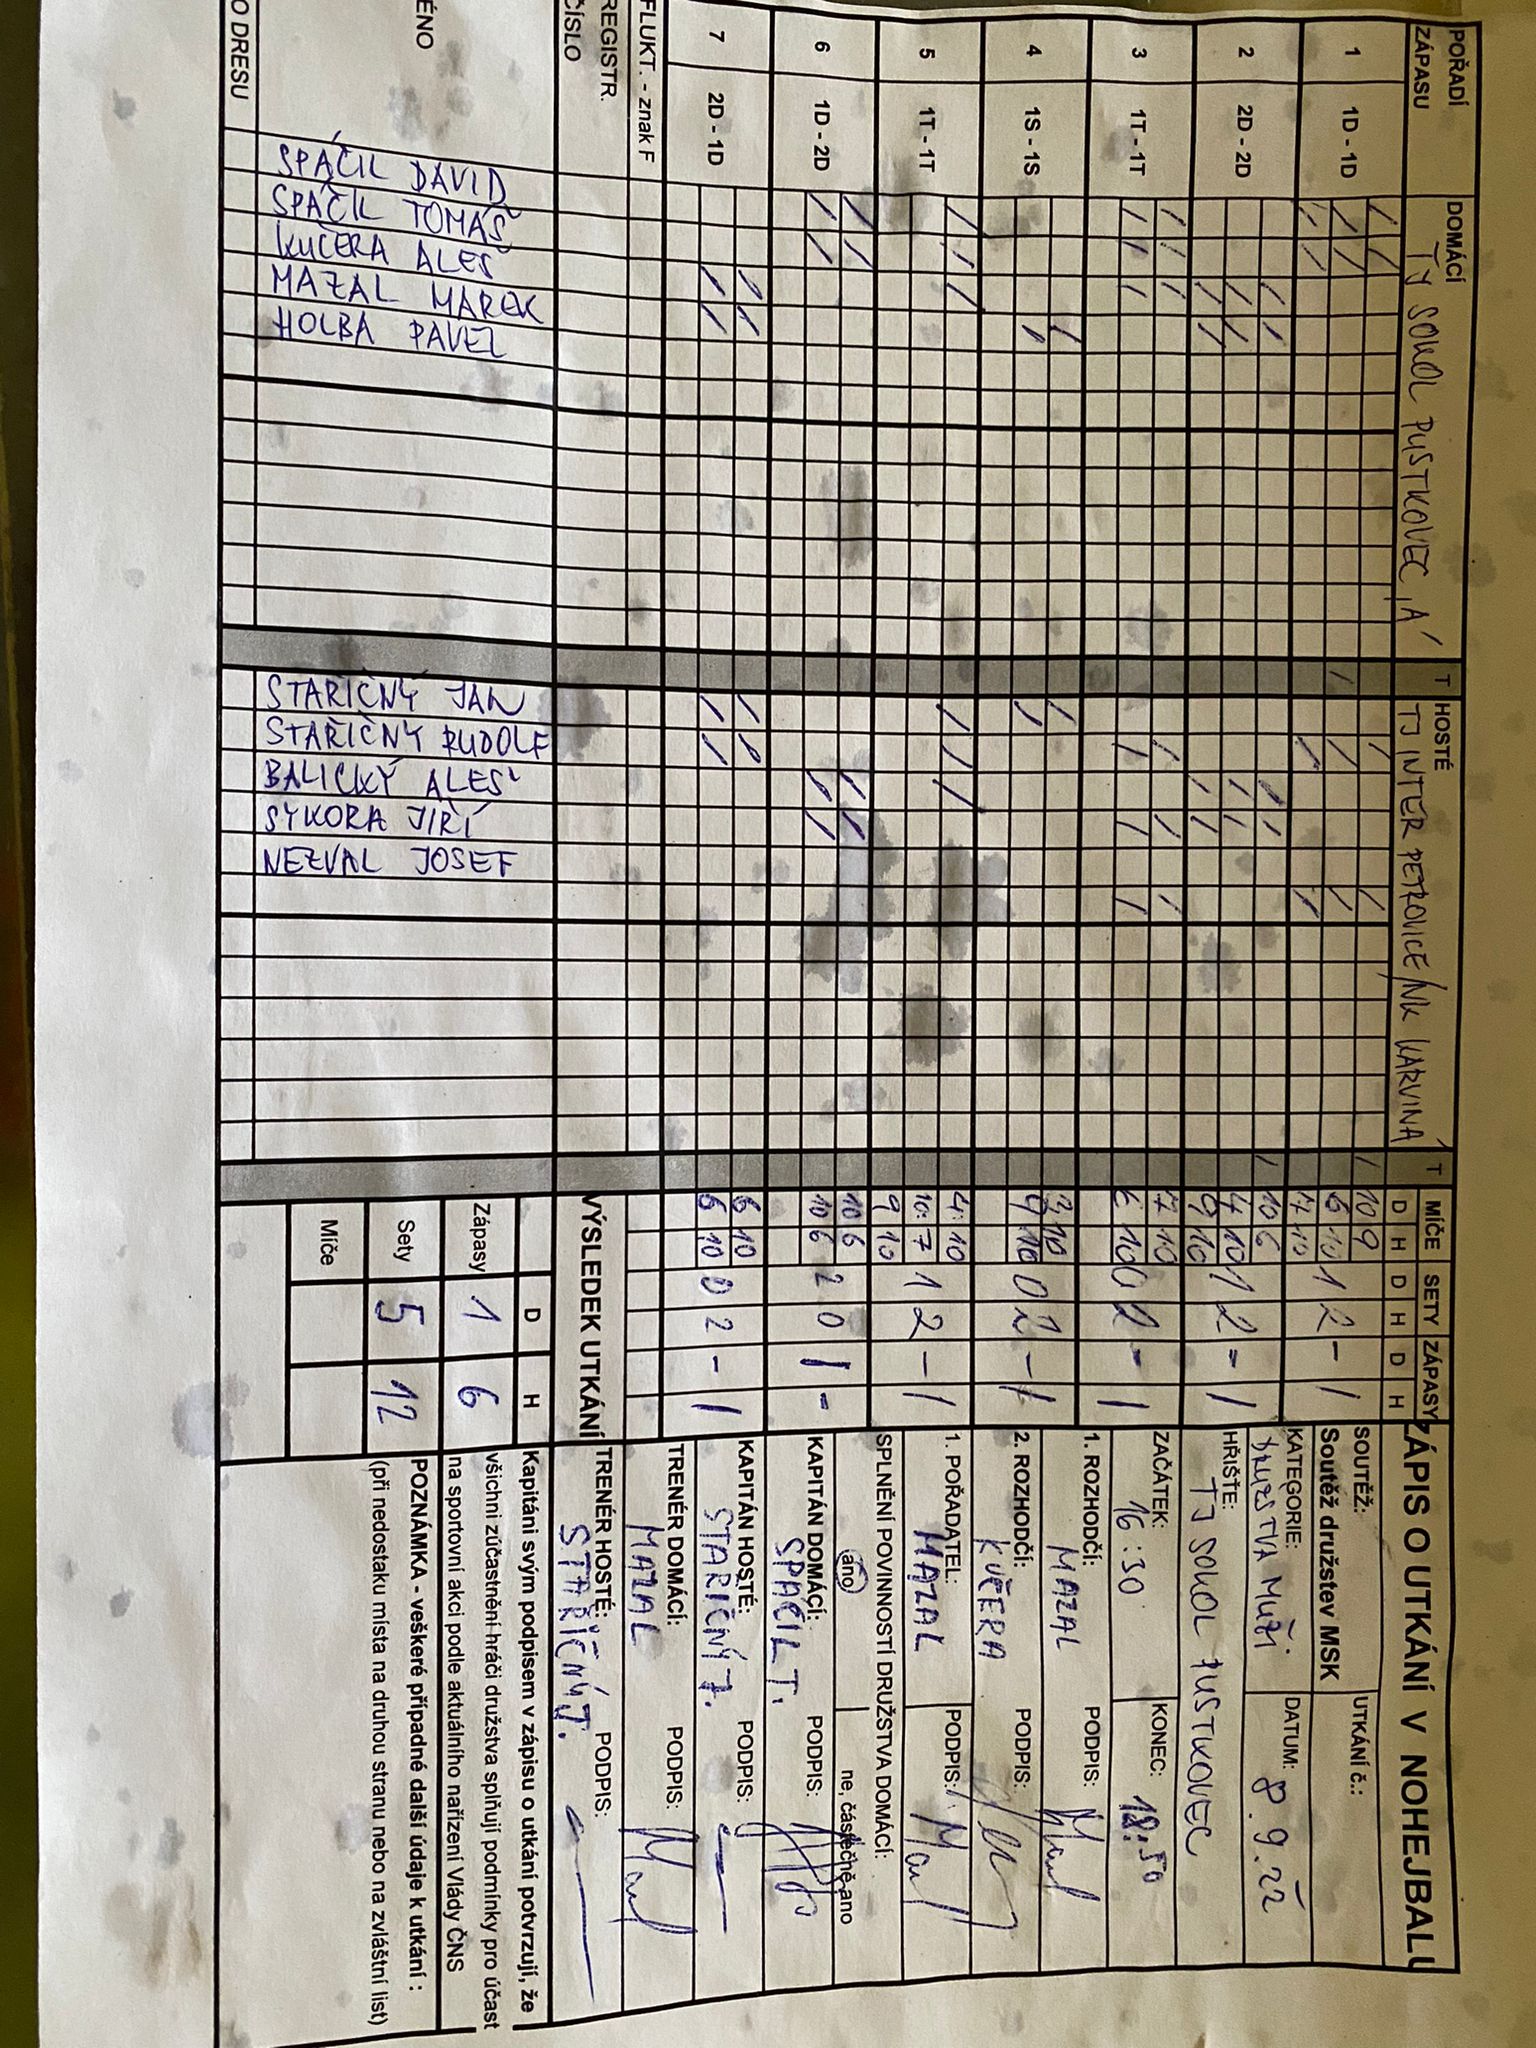 ZÁPIS O UTKÁNÍ V NOHEJBALU
POŘADÍ ZÁPASU
DOMÁCÍ
TJ SOKOL PUSTKOVEC „A"
T
HOSTÉ
TJ INTER PETROVICE/NK KARVINÁ
T
MÍČE
SETY
ZÁPASY
D H D H D H
1 1D - 1D
10 9
6 10
7 10
1 2 - 1
2 2D - 2D
10 6
7 10
9 10
1 2 - 1
3 1T - 1T
7 10
6 10
0 2 - 1
4 1S - 1S
3 10
9 10
0 2 - 1
5 1T - 1T
4:10
10:7
9 10
1 2 - 1
6 1D - 2D
10 6
10 6
2 0 1 -
7 2D - 1D
6 10
6 10
0 2 - 1
FLUKT. - znak F
REGISTR. ČÍSLO
ÉNO
SPÁČIL DAVID
SPÁČIL TOMÁŠ
KUČERA ALEŠ
MAZAL MAREK
HOLBA PAVEL
STAŘIČNÝ JAN
STAŘIČNÝ RUDOLF
BALICKÝ ALEŠ
SÝKORA JIŘÍ
NEZVAL JOSEF
O DRESU
VÝSLEDEK UTKÁNÍ
D H
Zápasy 1 6
Sety 5 12
Míče
SOUTĚŽ:
Soutěž družstev MSK
UTKÁNÍ č.:
KATEGORIE:
DRUŽSTVA MUŽI
DATUM: 8.9.22
HŘIŠTĚ:
TJ SOKOL PUSTKOVEC
ZAČÁTEK: 16:30
KONEC: 18:50
1. ROZHODČÍ: MAZAL
PODPIS:
2. ROZHODČÍ: KUČERA
PODPIS:
1. POŘADATEL: MAZAL
PODPIS:
SPLNĚNÍ POVINNOSTÍ DRUŽSTVA DOMÁCÍ:
ano
ne, částečně ano
KAPITÁN DOMÁCÍ: SPÁČIL T.
PODPIS:
KAPITÁN HOSTÉ: STAŘIČNÝ J.
PODPIS:
TRENÉR DOMÁCÍ: MAZAL
PODPIS:
TRENÉR HOSTÉ: STAŘIČNÝ J.
PODPIS:
Kapitáni svým podpisem v zápisu o utkání potvrzují, že
všichni zúčastnění hráči družstva splňují podmínky pro účast
na sportovní akci podle aktuálního nařízení Vlády ČNS
POZNÁMKA - veškeré případné další údaje k utkání :
(při nedostaku místa na druhou stranu nebo na zvláštní list)